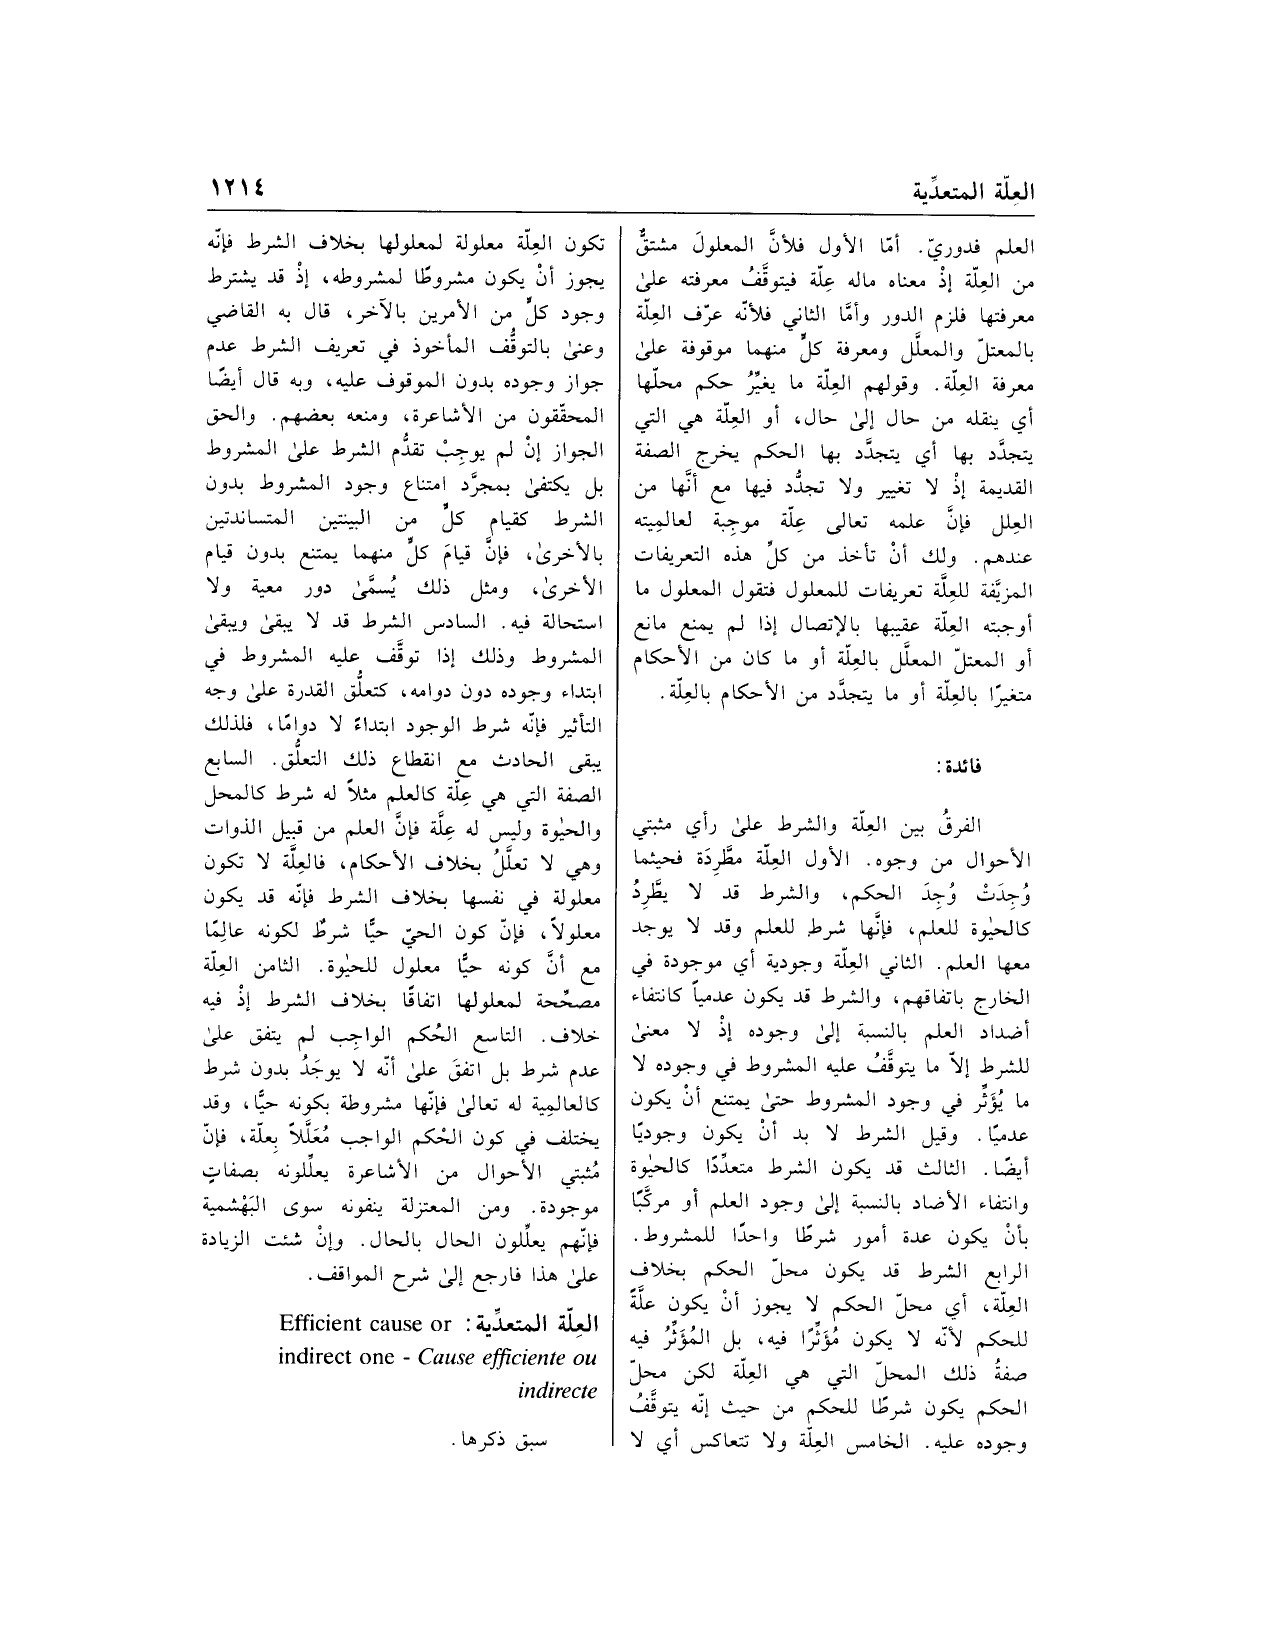 العِلّة المتعدِّية
١٢١٤
العلم فدوريّ. أمّا الأول فلأنَّ المعلولَ مشتقٌّ
من العِلّة إذْ معناه ماله عِلّة فيتوقَّفُ معرفته علىٰ
معرفتها فلزم الدور وأمَّا الثاني فلأنّه عرّف العِلّة
بالمعتلّ والمعلَّل ومعرفة كلٍّ منهما موقوفة علىٰ
معرفة العِلّة. وقولهم العِلّة ما يغيِّرُ حكم محلّها
أي ينقله من حال إلىٰ حال، أو العِلّة هي التي
يتجدَّد بها أي يتجدّد بها الحكم يخرج الصفة
القديمة إذْ لا تغيير ولا تجدُّد فيها مع أنَّها من
العِلل فإنَّ علمه تعالى عِلّة موجِبة لعالميته
عندهم. ولك أنْ تأخذ من كلِّ هذه التعريفات
المزيَّفة للعِلَّة تعريفات للمعلول فتقول المعلول ما
أوجبته العِلّة عقيبها بالإتصال إذا لم يمنع مانع
أو المعتلّ المعلَّل بالعِلّة أو ما كان من الأحكام
متغيرًا بالعِلّة أو ما يتجدَّد من الأحكام بالعِلّة.
فائدة:
الفرقُ بين العِلّة والشرط علىٰ رأي مثبتي
الأحوال من وجوه. الأول العِلّة مطَّرِدَة فحيثما
وُجِدَتْ وُجِدَ الحكم، والشرط قد لا يطَّرِدُ
كالحيٰوة للعلم، فإنَّها شرط للعلم وقد لا يوجد
معها العلم. الثاني العِلّة وجودية أي موجودة في
الخارج باتفاقهم، والشرط قد يكون عدمياً كانتفاء
أضداد العلم بالنسبة إلىٰ وجوده إذْ لا معنىٰ
للشرط إلاّ ما يتوقَّفُ عليه المشروط في وجوده لا
ما يُؤَثِّر في وجود المشروط حتىٰ يمتنع أنْ يكون
عدميًا. وقيل الشرط لا بد أنْ يكون وجوديًا
أيضًا. الثالث قد يكون الشرط متعدِّدًا كالحيٰوة
وانتفاء الأضاد بالنسبة إلىٰ وجود العلم أو مركَّبًا
بأنْ يكون عدة أمور شرطًا واحدًا للمشروط.
الرابع الشرط قد يكون محلّ الحكم بخلاف
العِلّة، أي محلّ الحكم لا يجوز أنْ يكون علَّةً
للحكم لأنّه لا يكون مُؤَثِّرًا فيه، بل المُؤَثِّرُ فيه
صفةُ ذلك المحلّ التي هي العِلّة لكن محلّ
الحكم يكون شرطًا للحكم من حيث إنّه يتوقَّفُ
وجوده عليه. الخامس العِلّة ولا تتعاكس أي لا
تكون العِلّة معلولة لمعلولها بخلاف الشرط فإنّه
يجوز أنْ يكون مشروطًا لمشروطه، إذْ قد يشترط
وجود كلٍّ من الأمرين بالآخر، قال به القاضي
وعنىٰ بالتوقُّف المأخوذ في تعريف الشرط عدم
جواز وجوده بدون الموقوف عليه، وبه قال أيضًا
المحقّقون من الأشاعرة، ومنعه بعضهم. والحق
الجواز إنْ لم يوجِبْ تقدُّم الشرط علىٰ المشروط
بل يكتفىٰ بمجرَّد امتناع وجود المشروط بدون
الشرط كقيام كلٍّ من البينتين المتساندتين
بالأخرىٰ، فإنَّ قيامَ كلٍّ منهما يمتنع بدون قيام
الأخرىٰ، ومثل ذلك يُسمَّىٰ دور معية ولا
استحالة فيه. السادس الشرط قد لا يبقىٰ ويبقىٰ
المشروط وذلك إذا توقَّف عليه المشروط في
ابتداء وجوده دون دوامه، كتعلُّق القدرة علىٰ وجه
التأثير فإنّه شرط الوجود ابتداءً لا دوامًا، فلذلك
يبقى الحادث مع انقطاع ذلك التعلُّق. السابع
الصفة التي هي عِلّة كالعلم مثلاً له شرط كالمحل
والحيٰوة وليس له عِلَّة فإنَّ العلم من قبيل الذوات
وهي لا تعلَّلُ بخلاف الأحكام، فالعِلَّة لا تكون
معلولة في نفسها بخلاف الشرط فإنّه قد يكون
معلولاً، فإنّ كون الحيّ حيًّا شرطٌ لكونه عالِمًا
مع أنَّ كونه حيًّا معلول للحيٰوة. الثامن العِلّة
مصحِّحة لمعلولها اتفاقًا بخلاف الشرط إذْ فيه
خلاف. التاسع الحُكم الواجِب لم يتفق علىٰ
عدم شرط بل اتفقَ علىٰ أنّه لا يوجَدُ بدون شرط
كالعالمِية له تعالىٰ فإنّها مشروطة بكونه حيًّا، وقد
يختلف في كون الحُكم الواجب مُعَلَّلاً بِعلّة، فإنّ
مُثبتي الأحوال من الأشاعرة يعلِّلونه بصفاتٍ
موجودة. ومن المعتزلة ينفونه سوى البَهْشمية
فإنّهم يعلِّلون الحال بالحال. وإنْ شئت الزيادة
علىٰ هذا فارجع إلىٰ شرح المواقف.
العِلّة المتعدِّية: Efficient cause or
indirect one - Cause efficiente ou
indirecte
سبق ذكرها.